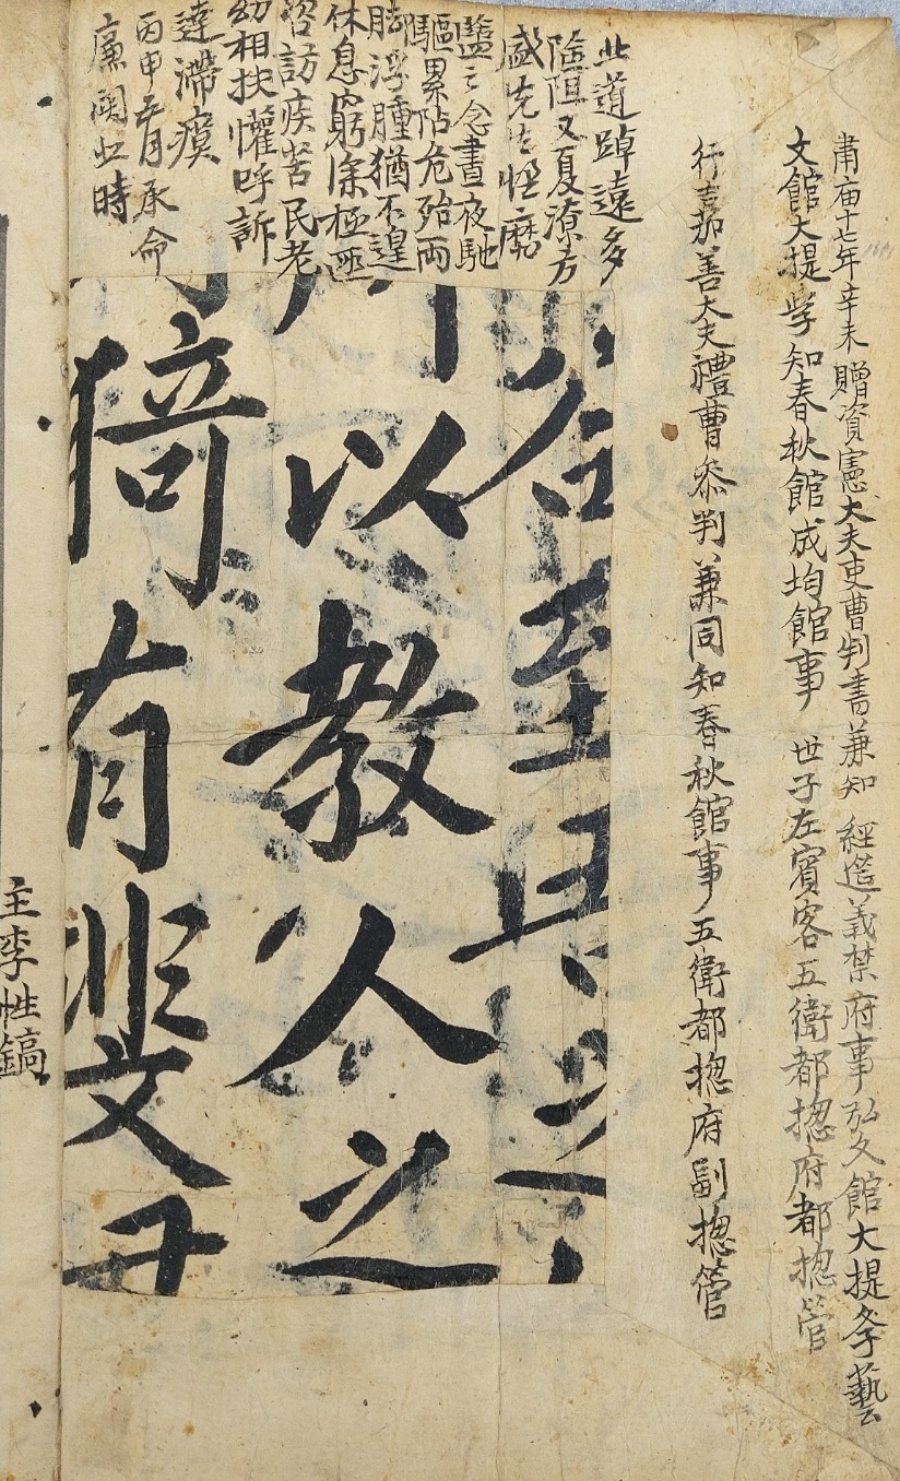 肅庙十七年辛未贈資憲大夫吏曹判書兼知 經筵義禁府事弘文館大提學藝
文館大提學知春秋館成均館事 世子左賓客五衛都摠府都摠管
行嘉善大夫禮曹叅判兼同知春秋館事五衛都摠府副摠管
此道踔遠多
險阻又夏潦方
盛先生恇
盬之念晝夜馳
驅累阽危殆兩
脚浮腫猶不遑
休息窮深極
咨訪疾苦民老
幼相扶懽呼訴
達滯瘼
丙申五月承命
廉問此時
至具之
以教人之
猗有斐
主李性鎬